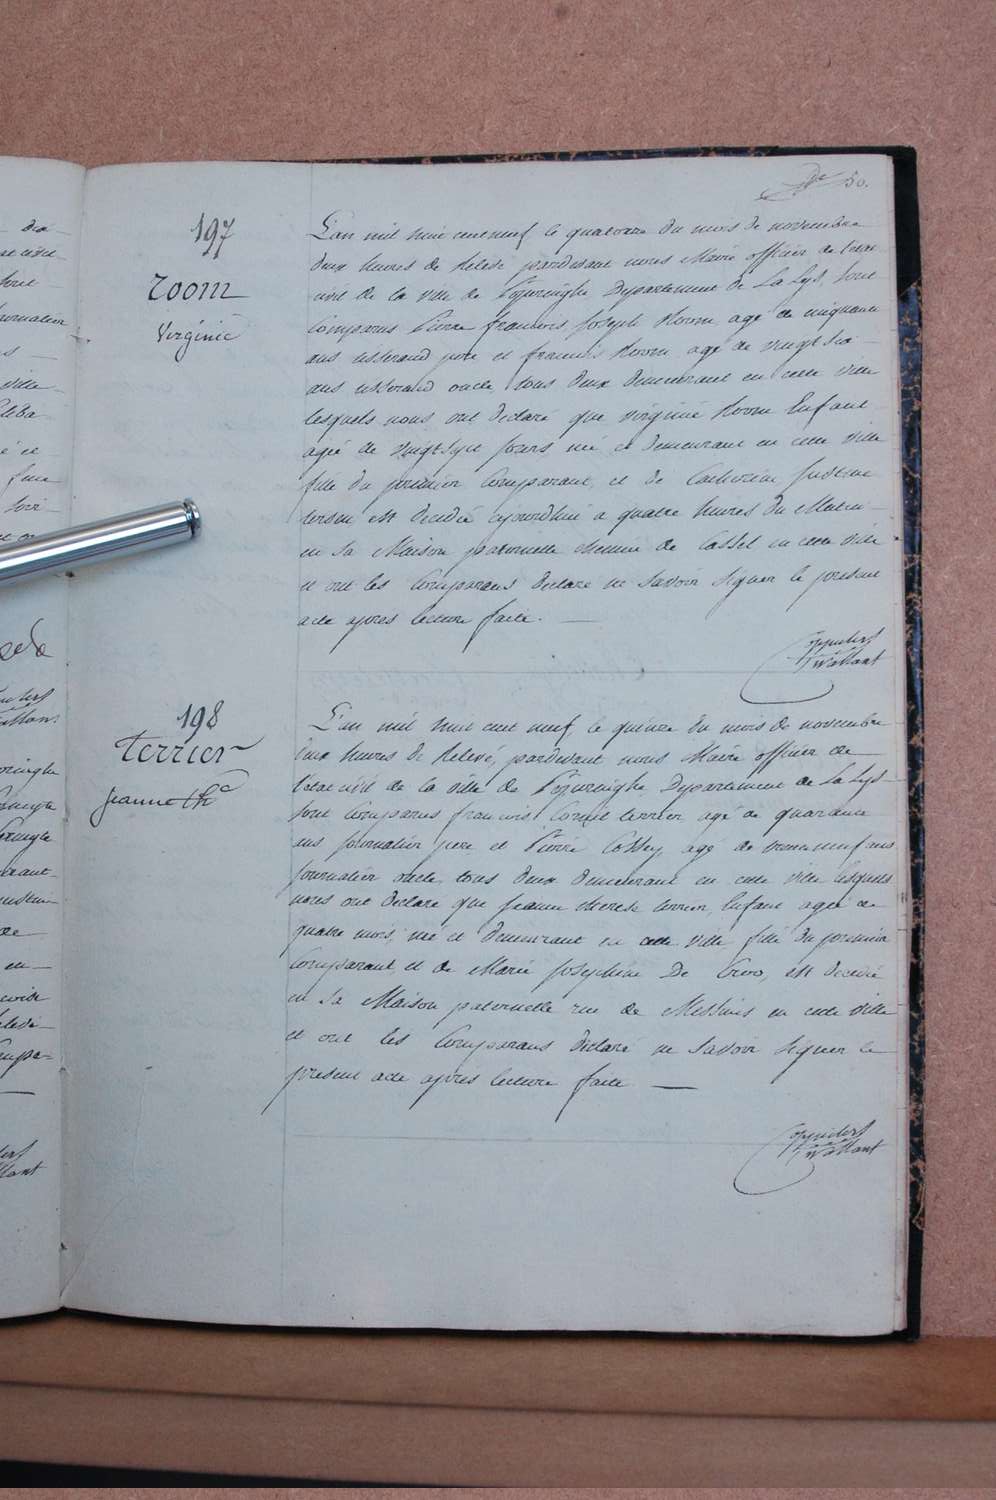 50.
197
Room
Virginie
L'an mil huit cent neuf le quatorze du mois de novembre
deux heures de Relevé pardevant nous Maire officier de l'etat
civil de la ville de Poperinghe Departement de La Lys, sont
Comparus Pierre francois Joseph Room, agé de cinquante
ans tisserand pere et francois Room agé de vingt six
ans tisserand oncle, tous deux demeurant en cette ville
lesquels nous ont declaré que virginie Room Enfant
agée de vingt sept jours née et demeurant en cette ville
fille du premier Comparant, et de Catherine Justine
est decedée aujourdhui a quatre heures du Matin
en sa Maison paternelle chemin de Cassel en cette ville
et ont les Comparans declaré ne savoir signer le present
acte après lecture faite.
198
Terrier
Jeanne The
L'an mil huit cent neuf, le quinze du mois de novembre
deux heures de Relevé, pardevant nous Maire officier de
l'etat civil de la ville de Poperinghe Departement de La Lys
sont Comparus francois Corneil terrier agé de quarante
ans journalier pere et Pierre Cossey agé de trente neuf ans
journalier oncle, tous deux demeurant en cette ville lesquels
nous ont declaré que jeanne therese terrier, Enfant agée de
quatre mois, née et demeurant en cette ville fille du premier
Comparant, et de Marie Josephine De Croo, est decedée
en sa Maison paternelle rue de Messines en cette ville
et ont les Comparans declaré ne Savoir signer le
present acte après lecture faite